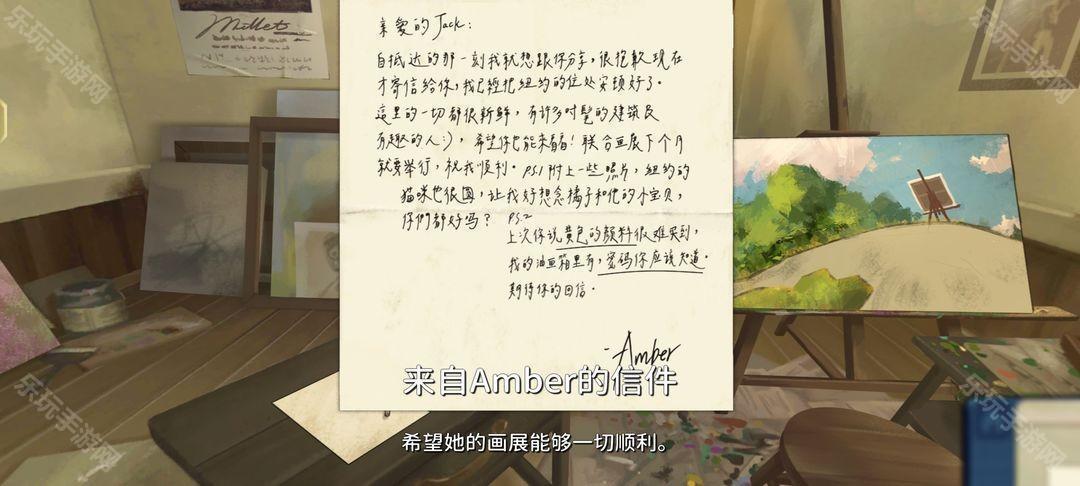 Millet
亲爱的Jack:
自抵达的那一刻我就想跟你分享,很抱歉现在
才寄信给你,我已經把纽约的住处安顿好了。
這里的一切都很新鮮,有许多时髦的建筑及
有趣的人:),希望你也能来看看!联合画展下个月
就要举行,祝我顺利。P.S.1附上一些照片,纽约的
猫咪也很圆,让我好想念橘子和他的小宝贝,
你們都好吗?
P.S.2
上次你说黄色的颜料很难买到,
我的油画箱里有,密码你应该知道。
期待你的回信。
-Amber
来自Amber的信件
希望她的画展能够一切顺利。
乐玩手游网
乐玩手游网
乐玩手游网
乐玩手游网